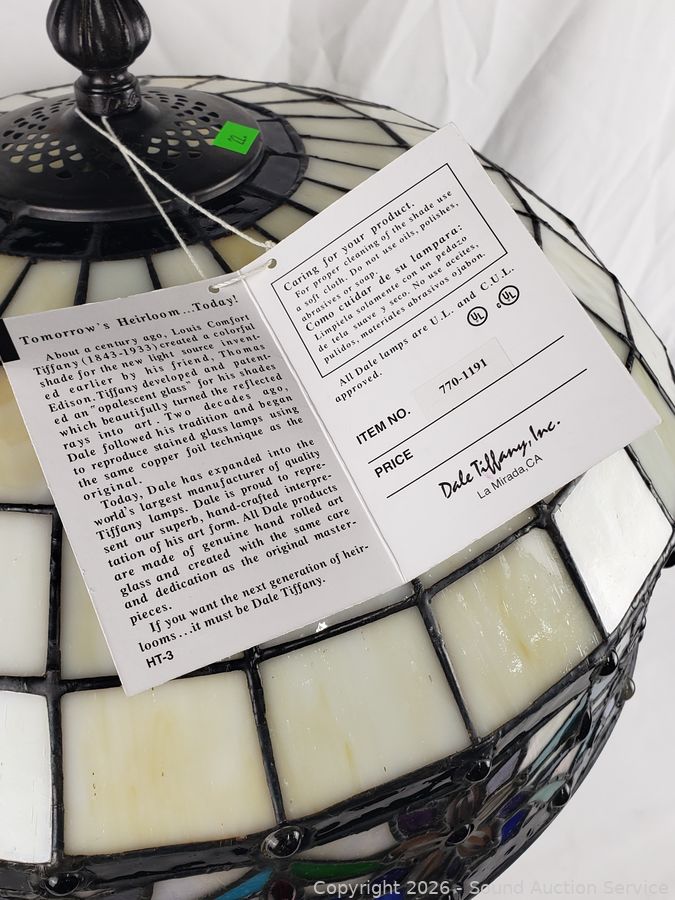 22.
Tomorrow's Heirloom...Today!
About a century ago, Louis Comfort
Tiffany (1843-1933) created a colorful
shade for the new light source invent-
ed earlier by his friend, Thomas
Edison. Tiffany developed and patent-
ed an "opalescent glass" for his shades
which beautifully turned the reflected
rays into art. Two decades ago,
Dale followed his tradition and began
to reproduce stained glass lamps using
the same copper foil technique as the
original.
Today, Dale has expanded into the
world's largest manufacturer of quality
Tiffany lamps. Dale is proud to repre-
sent our superb, hand-crafted interpre-
tation of his art form. All Dale products
are made of genuine hand rolled art
glass and created with the same care
and dedication as the original master-
pieces.
If you want the next generation of heir-
looms...it must be Dale Tiffany.
HT-3
Caring for your product.
For proper cleaning of the shade use
a soft cloth. Do not use oils, polishes,
abrasives or soap.
Como cuidar de su lampara:
Limpiela solamente con un pedazo
de tela suave y seco. No use aceites,
pulidos, materiales abrasivos ojabon.
All Dale lamps are U.L. and C.U.L.
approved.
UL c UL
ITEM NO. 770-1191
PRICE
Dale Tiffany, Inc.
La Mirada, CA
Copyright 2026 - Sound Auction Service